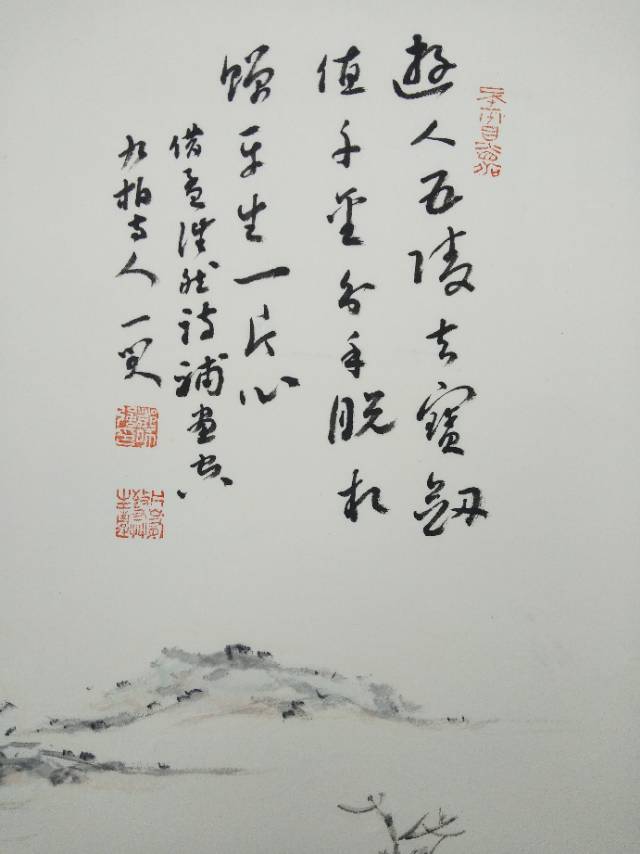 遊人五陵去寶劒
值千金分手脫相
贈平生一片心
借孟浩然詩補畫空
柏 人一